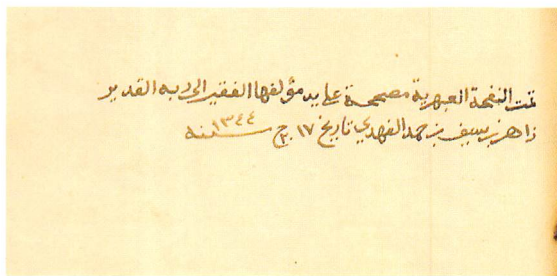 تمت النفحة العبهرية مصححة على يد مؤلفها الفقير الى ربه القدير
زاهر بن سيف بن حمد الفهدي تاريخ ١٧ ج سنه ١٣٤٤